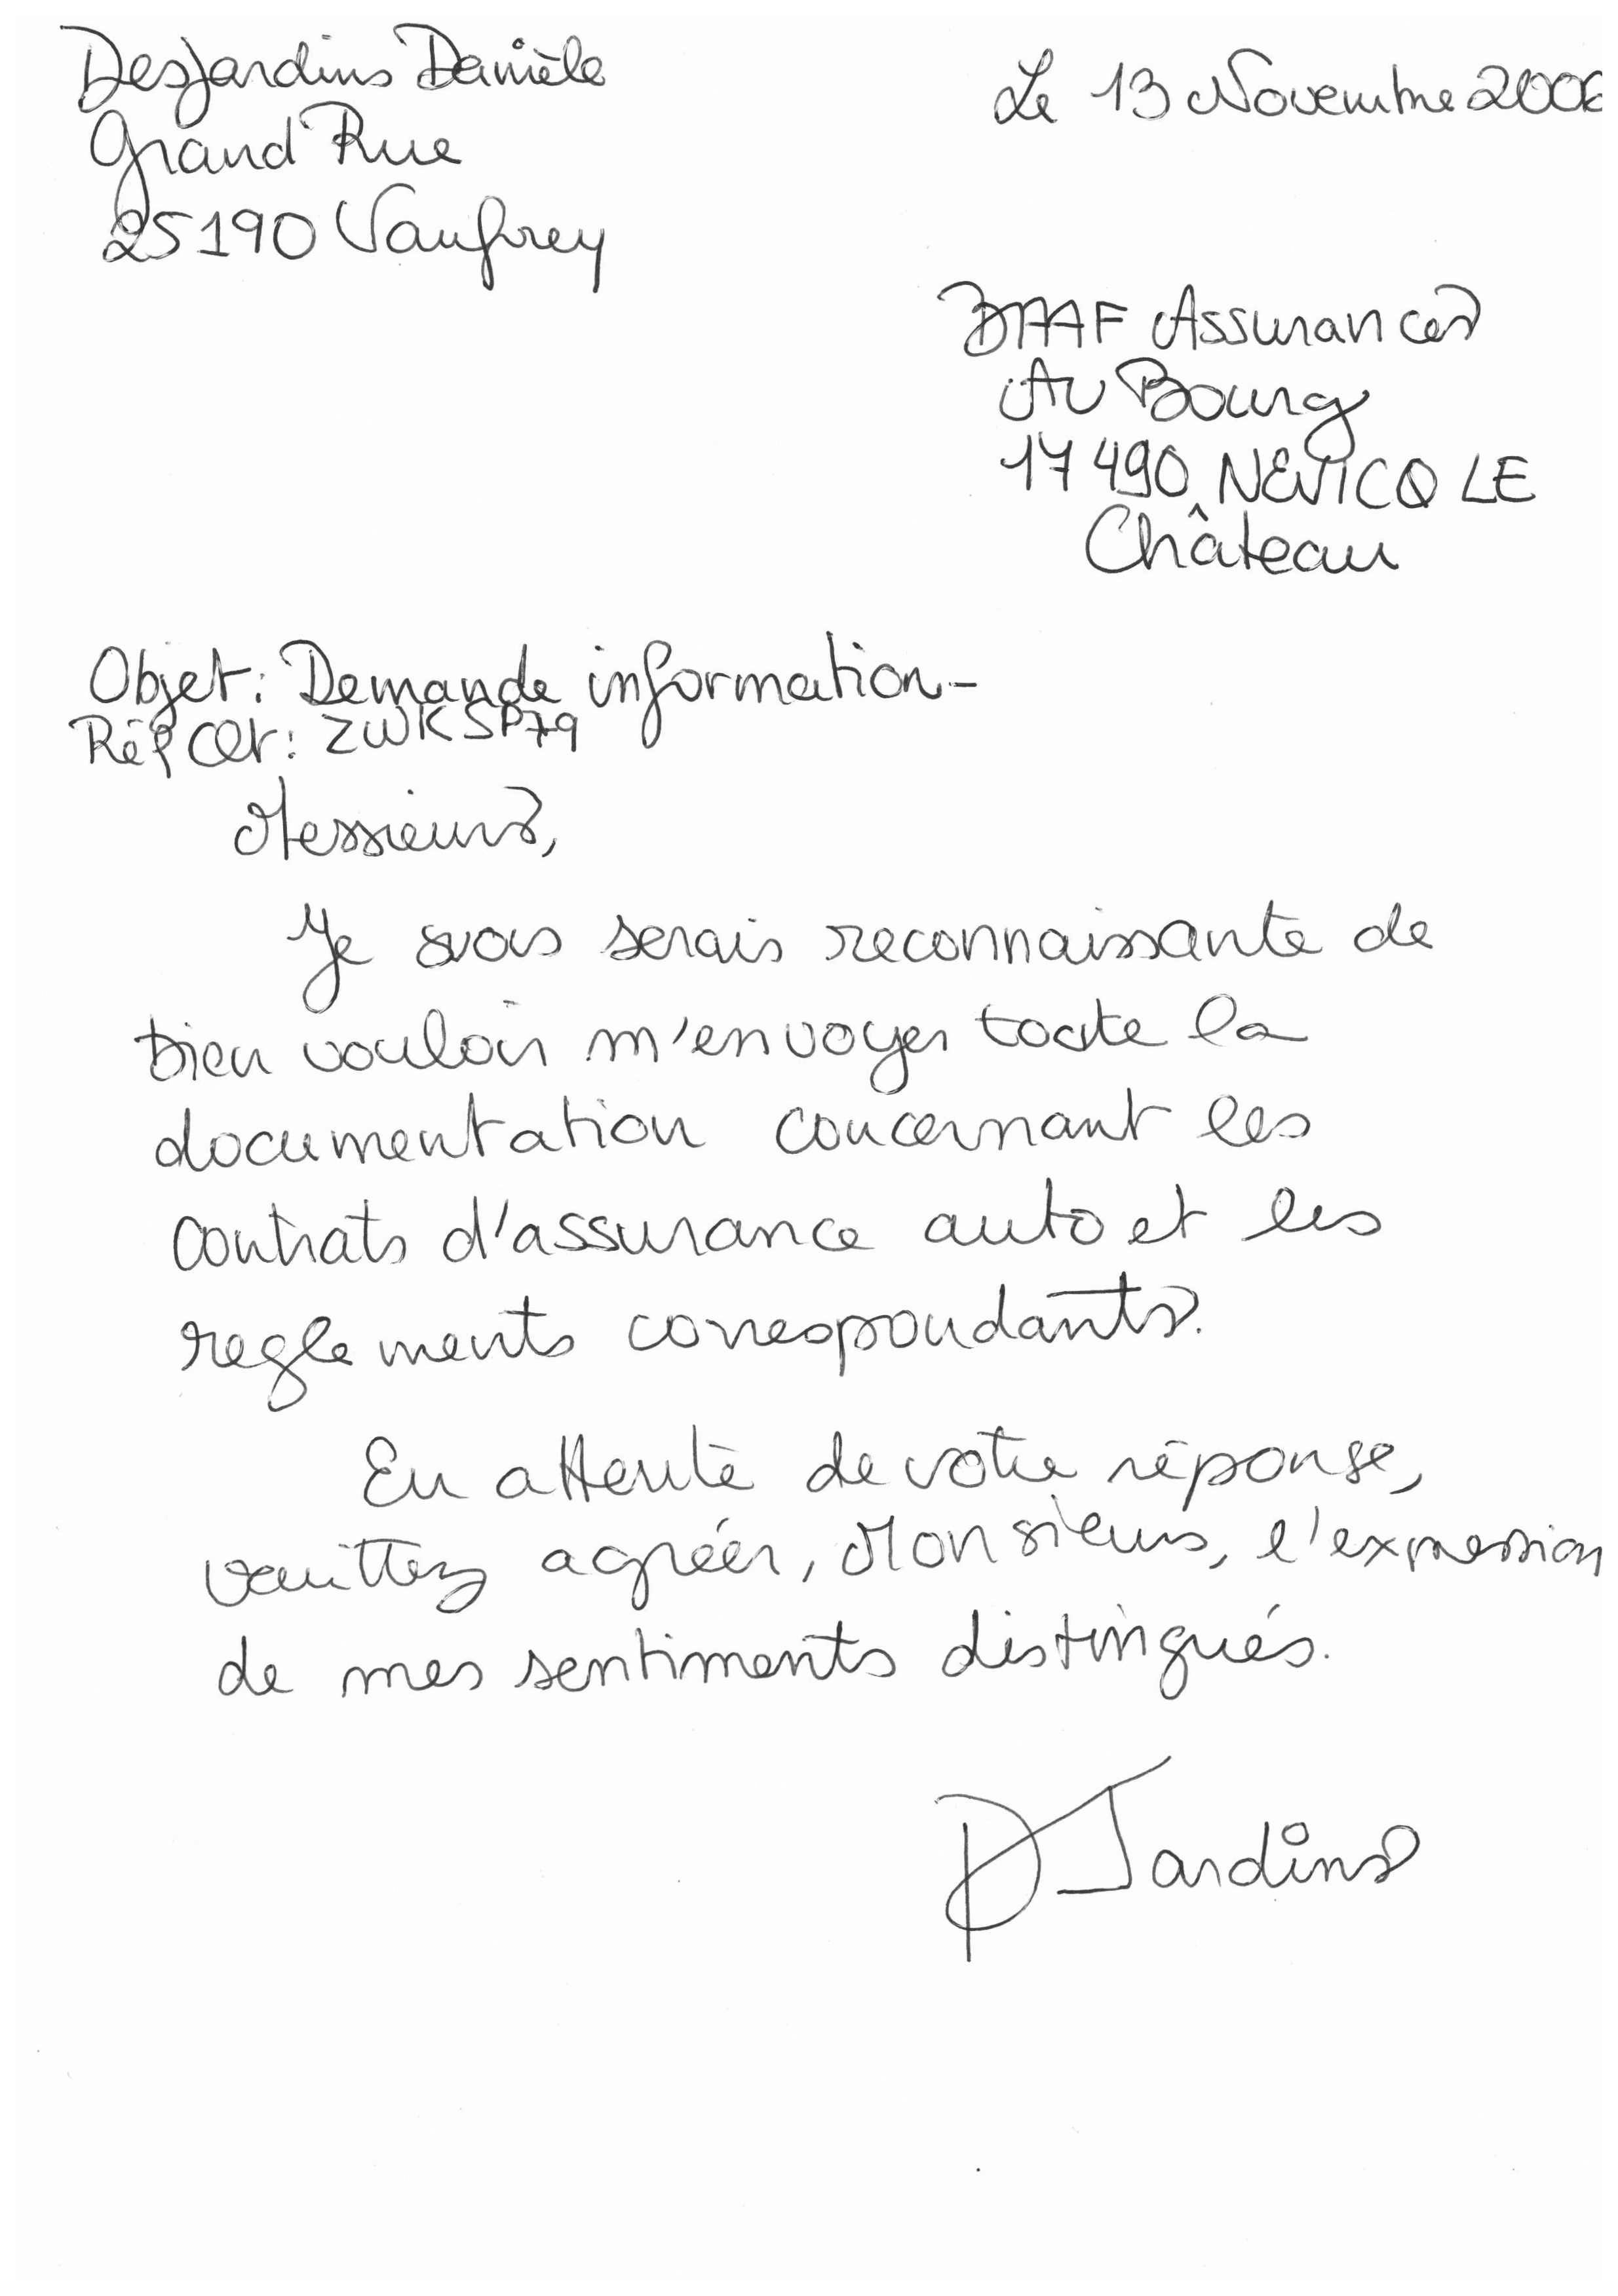 DesJardins Danièle
Grand Rue
25190 Vaufrey
Le 13 Novembre 2006
DAAF Assurances
Au Bourg
17490 NEVICQ LE
Château
Objet: Demande information-
Réf Clt: ZWKSP79
Messieurs,
Je vous serais reconnaissante de
bien vouloir m'envoyer toute la
documentation concernant les
contrats d'assurance auto et les
reglements correspondants.
En attente de votre réponse,
veuittez agréer, Monsieurs, l'expression
de mes sentiments distingués.
D Jardins